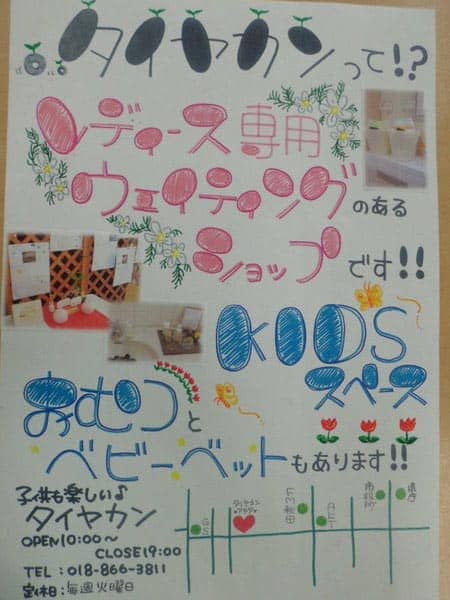 タイヤカンって!?
レディース専用
ウェイティングのある
ショップです!!
KIDS
スペース
おむつと
ベビーベットもあります!!
子供も楽しい♪
タイヤカン
OPEN10:00〜
CLOSE19:00
TEL:018-866-3811
定休日:毎週火曜日
GS
タイヤカン
エフエム秋田
市役所
県庁